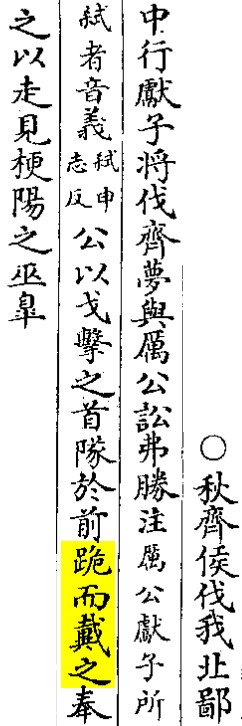 ○秋齊侯伐我北鄙
中行獻子將伐齊夢與厲公訟弗勝注厲公獻子所
弑者音義弑申志反公以戈擊之首隊於前跪而戴之奉
之以走見梗陽之巫臯